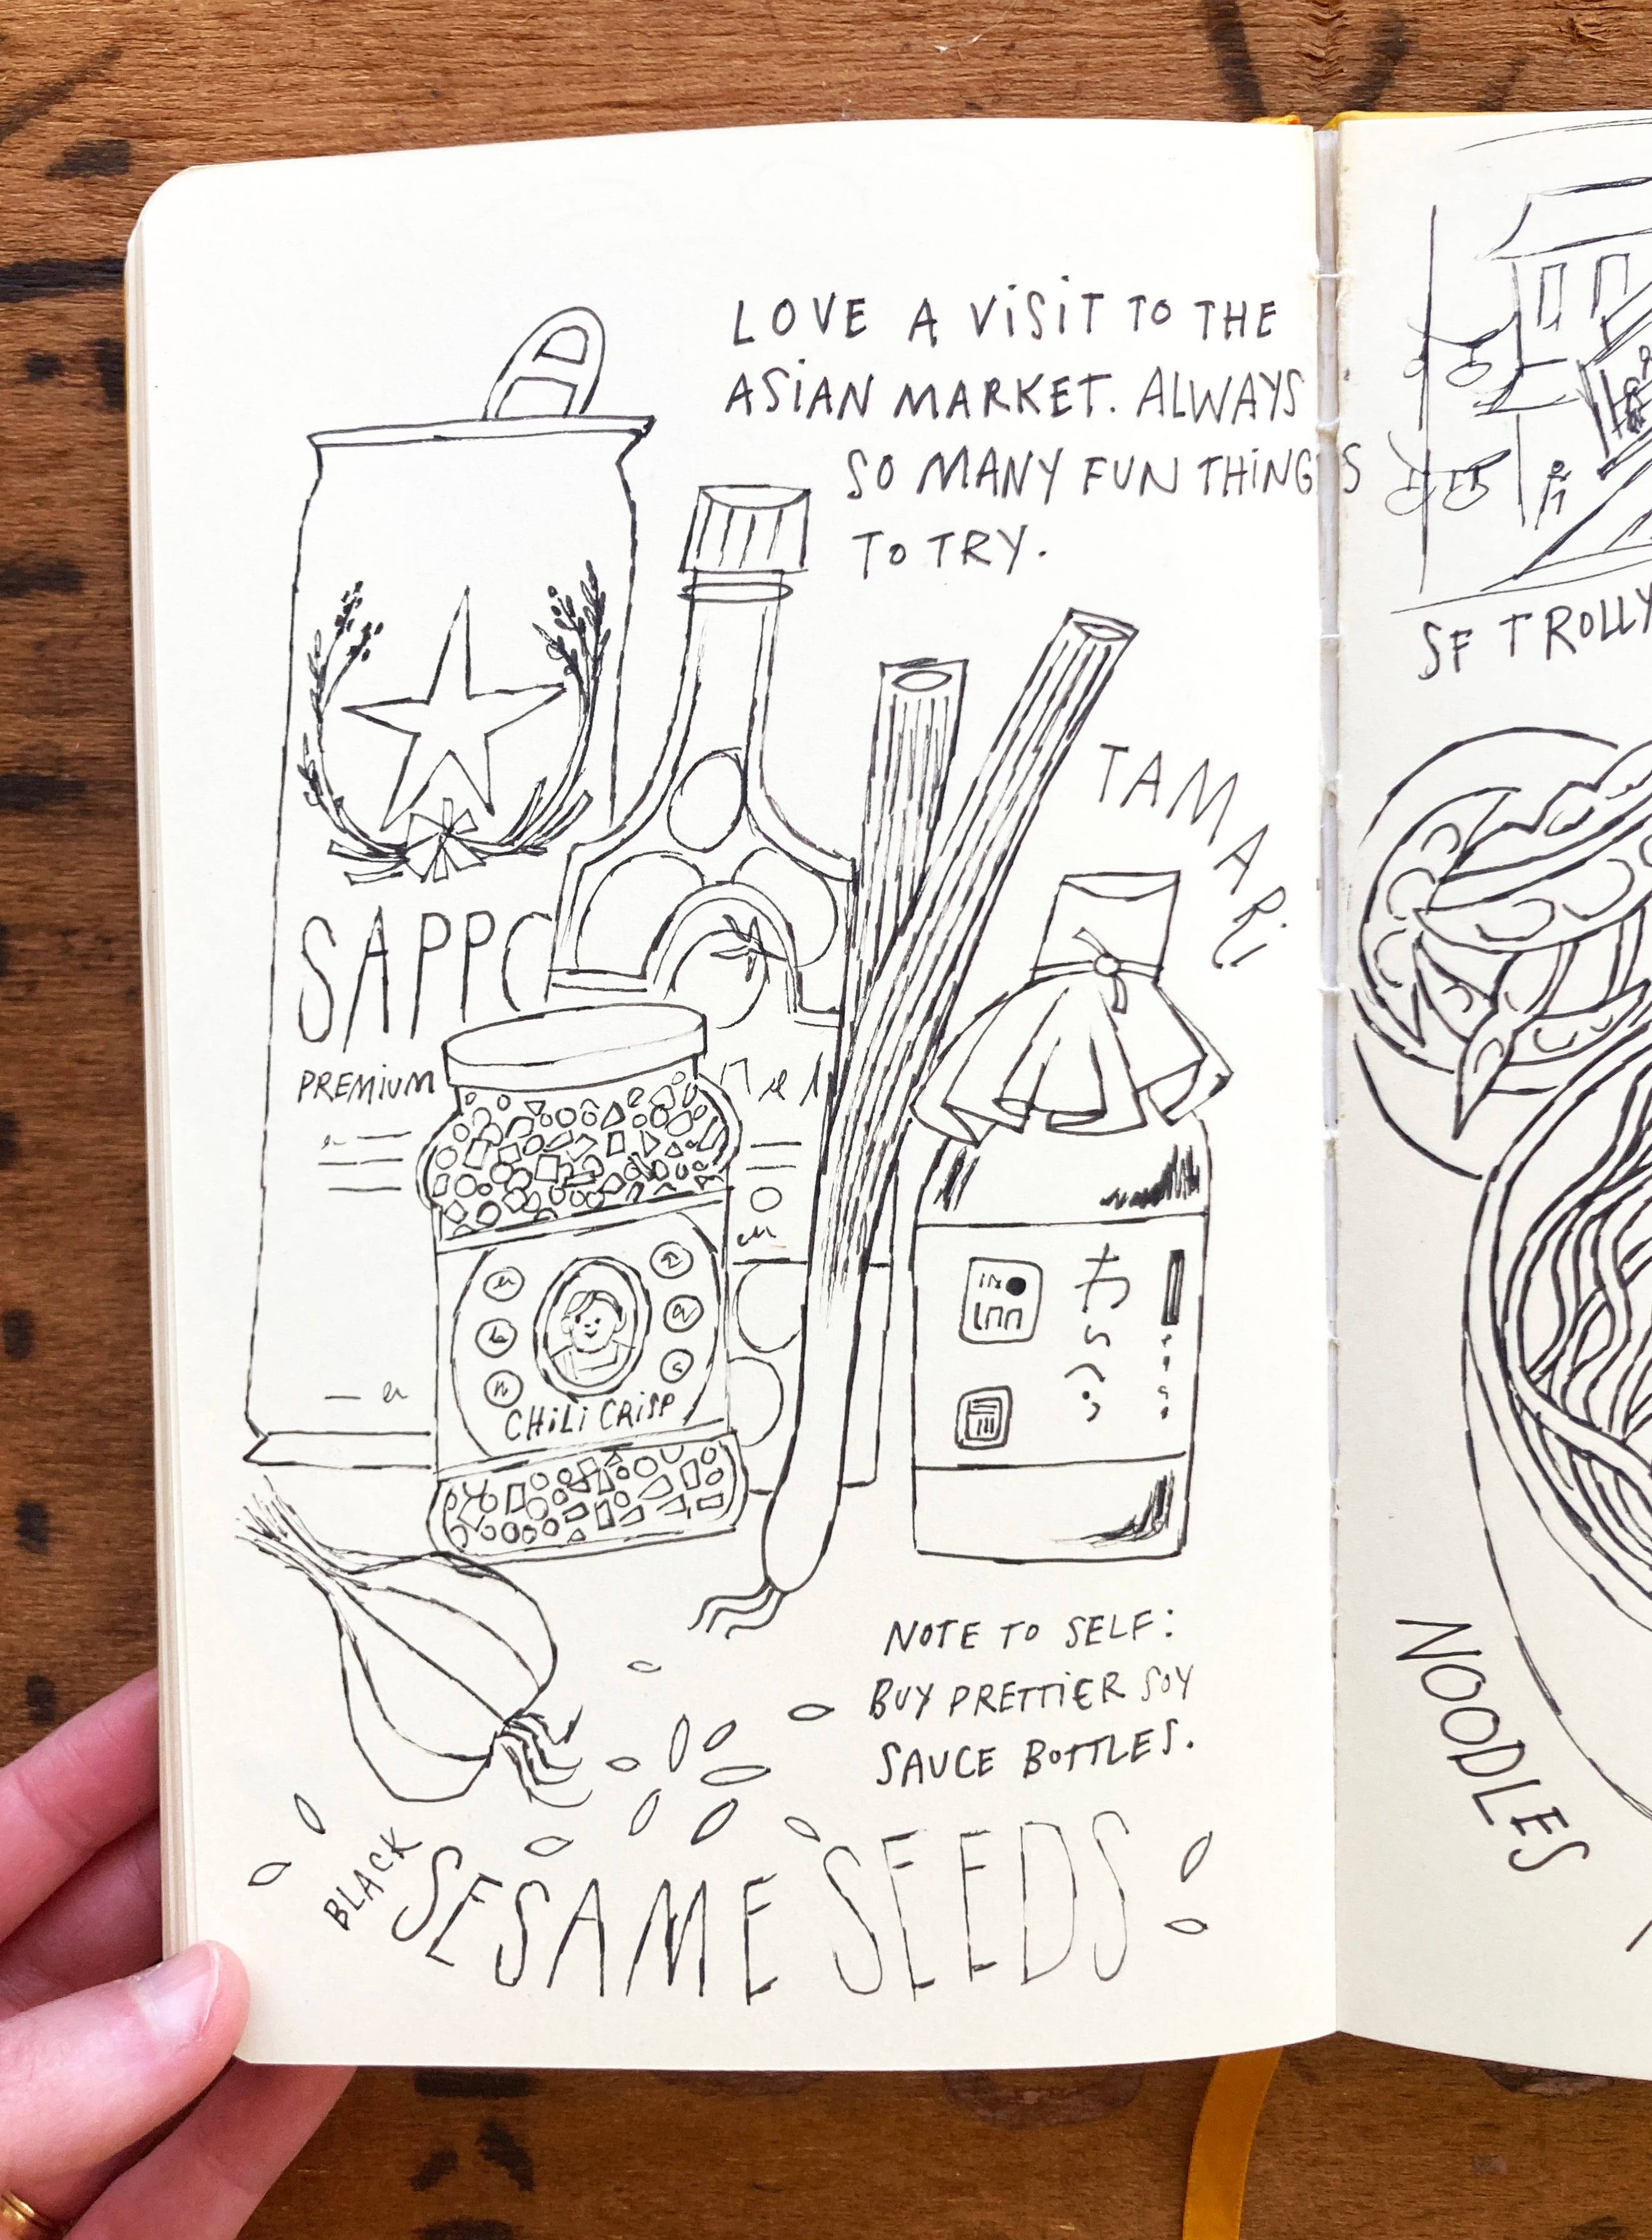 LOVE A ViSiT TO THE
ASiAN MARKET. ALWAYS
SO MANY FUN THiNGS
TO TRY.
TAMARi
SAPPO
PREMiUM
CHiLi CRiSP
NOTE TO SELF:
BUY PRETTiER SOY
SAUCE BOTTLES.
BLACK SESAME SEEDS
SF TROLLY
NOODLES